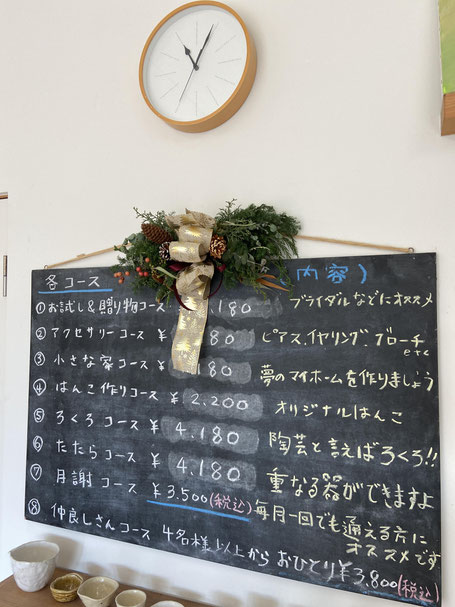 各コース
(内容)
①お試し&贈り物コース 180 ブライダルなどにオススメ
②アクセサリーコース ¥ 80 ピアス.イヤリング ブローチ etc
③小さな家コース ¥ 180 夢のマイホームを作りましょう
④はんこ作りコース ¥2,200 オリジナルはんこ
⑤ろくろコース ¥4.180 陶芸と言えばろくろ!!
⑥たたらコース ¥4.180 重なる器ができますよ
⑦月謝コース ¥3.500(税込) 毎月一回でも通える方に
オススメです
⑧仲良しさんコース 4名様以上から おひとり¥3.800(税込)